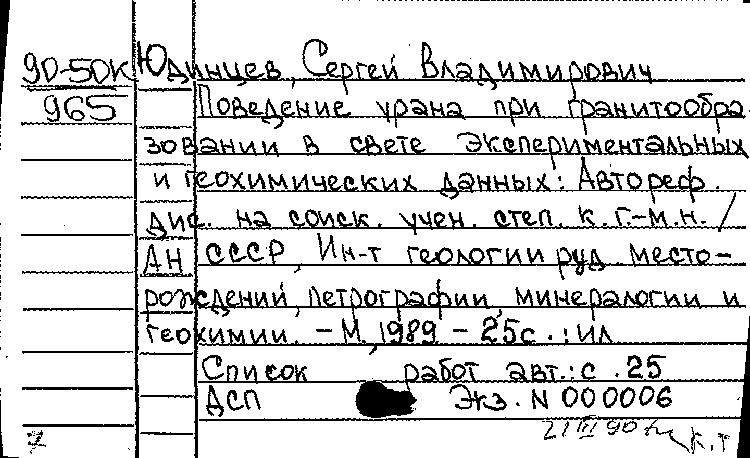 90-50К Юдинцев, Сергей Владимирович
965 Поведение урана при гранитообра
зовании в свете экспериментальных
и геохимических данных: Автореф.
дис. на соиск. учен. степ. к. г.-м.н. /
АН СССР, Ин-т геологии руд. место-
рождений, петрографии, минералогии и
геохимии. - М., 1989 - 25с. : ил
Список работ авт.: с. 25
ДСП Экз. N 000006
21 III 90
к. т